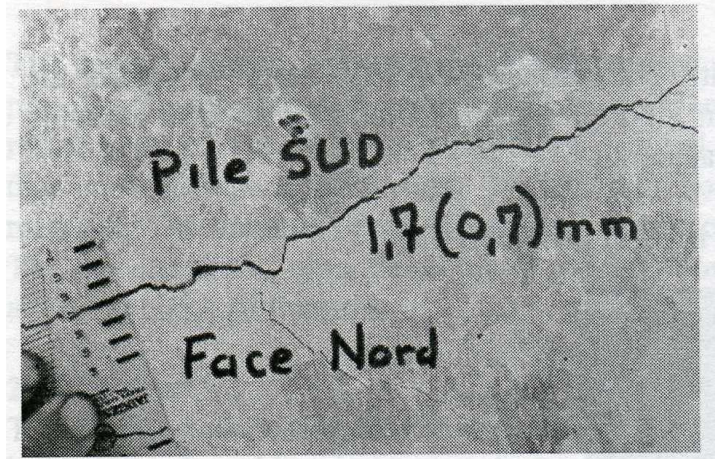 Pile SUD
1,7(0,7)mm
Face Nord